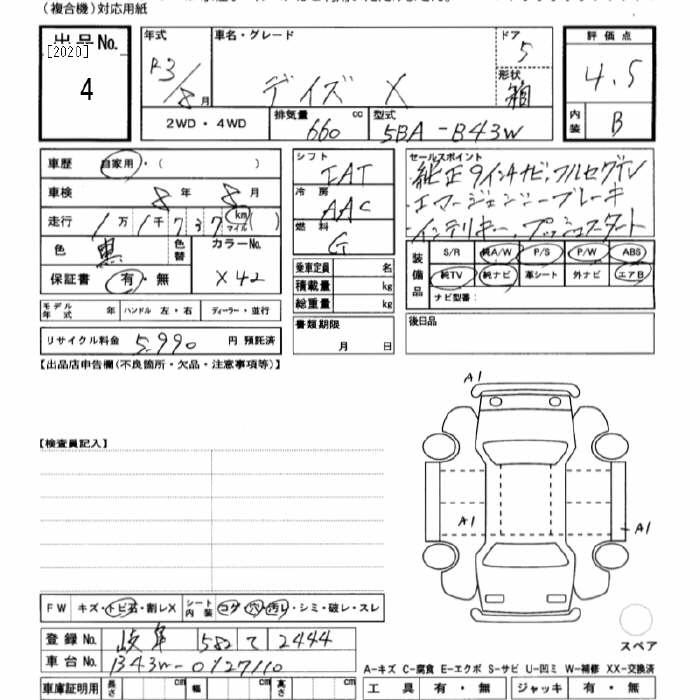 (複合機)対応用紙
出品No.
[2020]
4
年式 車名・グレード ドア 5
R3/8月 デイズ X 形状 箱
2WD・4WD 排気量 660 cc 型式 5BA-B43W
評価点
4.5
内装 B
車歴 自家用・( )
車検 8年 8月
走行 1万1千737 km マイル ( )
色 黒 色替 カラーNo. X42
保証書 有・無
モデル年式 年 ハンドル 左・右 ディーラー・並行
リサイクル料金 5,990 円 預託済
シフト IAT
冷房 AAC
燃料 G
乗車定員 名
積載量 kg
総重量 kg
書類期限
月 日
セールスポイント
・純正9インチナビ,フルセグTV
・エマージェンシーブレーキ
・インテリキー,プッシュスタート
装備品 S/R 純A/W P/S P/W ABS
純TV 純ナビ 革シート 外ナビ エアB
ナビ型番:
後日品
【出品店申告欄(不良箇所・欠品・注意事項等)】
【検査員記入】
A1
A1
A1
スペア
FW キズ・トビ石・割レX シート内装 コゲ・穴・汚レ・シミ・破レ・スレ
登録No. 岐阜 582 て 2444
車台No. B43W-0127110
車庫証明用 長さ cm 幅 cm 高さ cm
A-キズ C-腐食 E-エクボ S-サビ U-凹ミ W-補修 XX-交換済
工具 有・無 ジャッキ 有・無